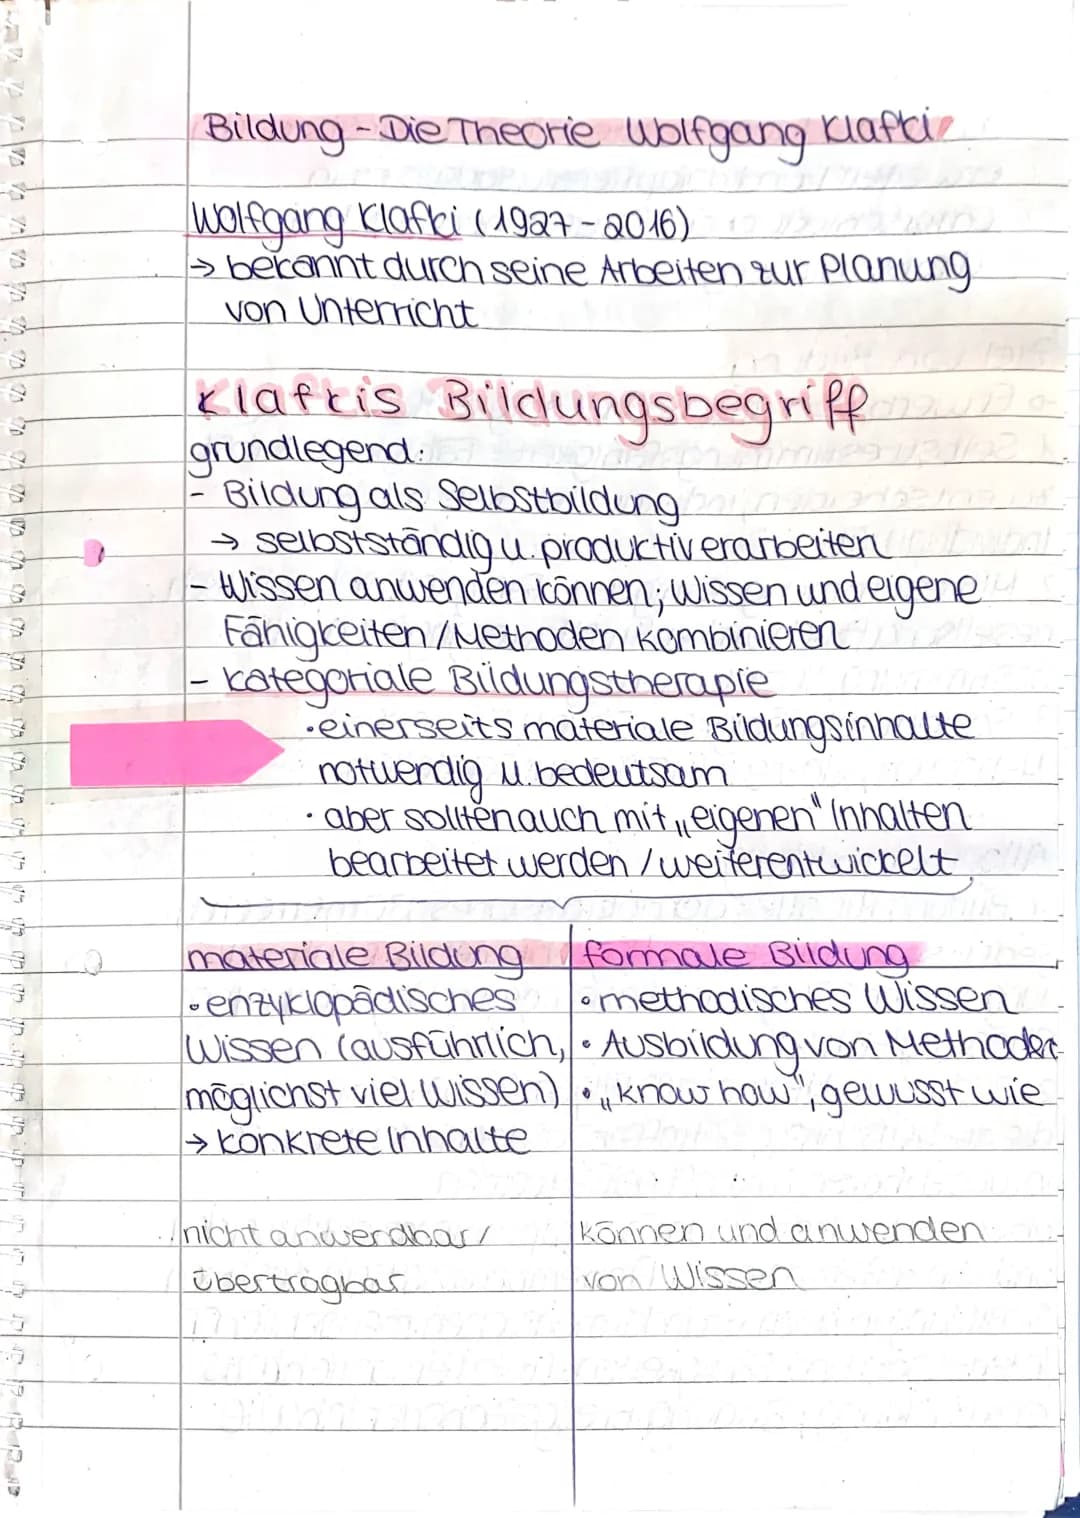 Bildung - Die Theorie Wolfgang Klafki
Wolfgang Klafki (1927-2016)
→ bekannt durch seine Arbeiten zur Planung
von Unterricht
Klafkis Bildungsbegriff
grundlegend:
- Bildung als Selbstbildung
→ selbstständig u. produktiv erarbeiten
- Wissen anwenden können; Wissen und eigene
Fähigkeiten/Methoden kombinieren
- kategoriale Bildungstherapie
· einerseits materiale Bildungsinhalte
notwendig u. bedeutsam
· aber sollten auch mit „eigenen" Inhalten
bearbeitet werden / weiterentwickelt
materiale Bildung
• enzyklopädisches
Wissen (ausführlich,
möglichst viel Wissen)
→ konkrete Inhalte
nicht anwendbar/
übertragbar
formale Bildung
• methodisches Wissen
• Ausbildung von Methoden
• „know how", gewusst wie
können und anwenden
von Wissen